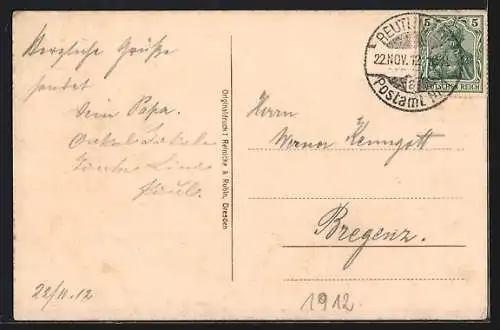 Herzliche Grüße
sendet
Dein Papa.
Onkel
Tante Line
Paul.
22/11.12
Originaldruck! Reinicke & Rubin, Dresden
REUTL
22.NOV.12
Postamt
5 5
DEUTSCHES REICH
Herrn
Werner Kenngott
Bregenz.
1912